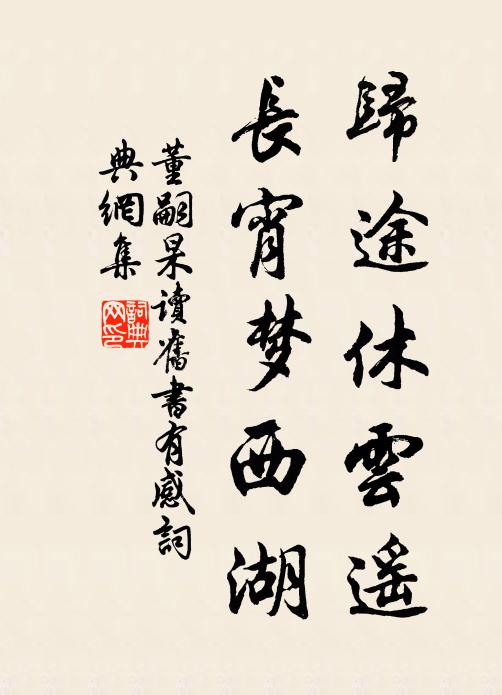 歸途休雲遥
長宵梦西湖
董嗣杲讀舊書有感詞
典網集
詞典網印